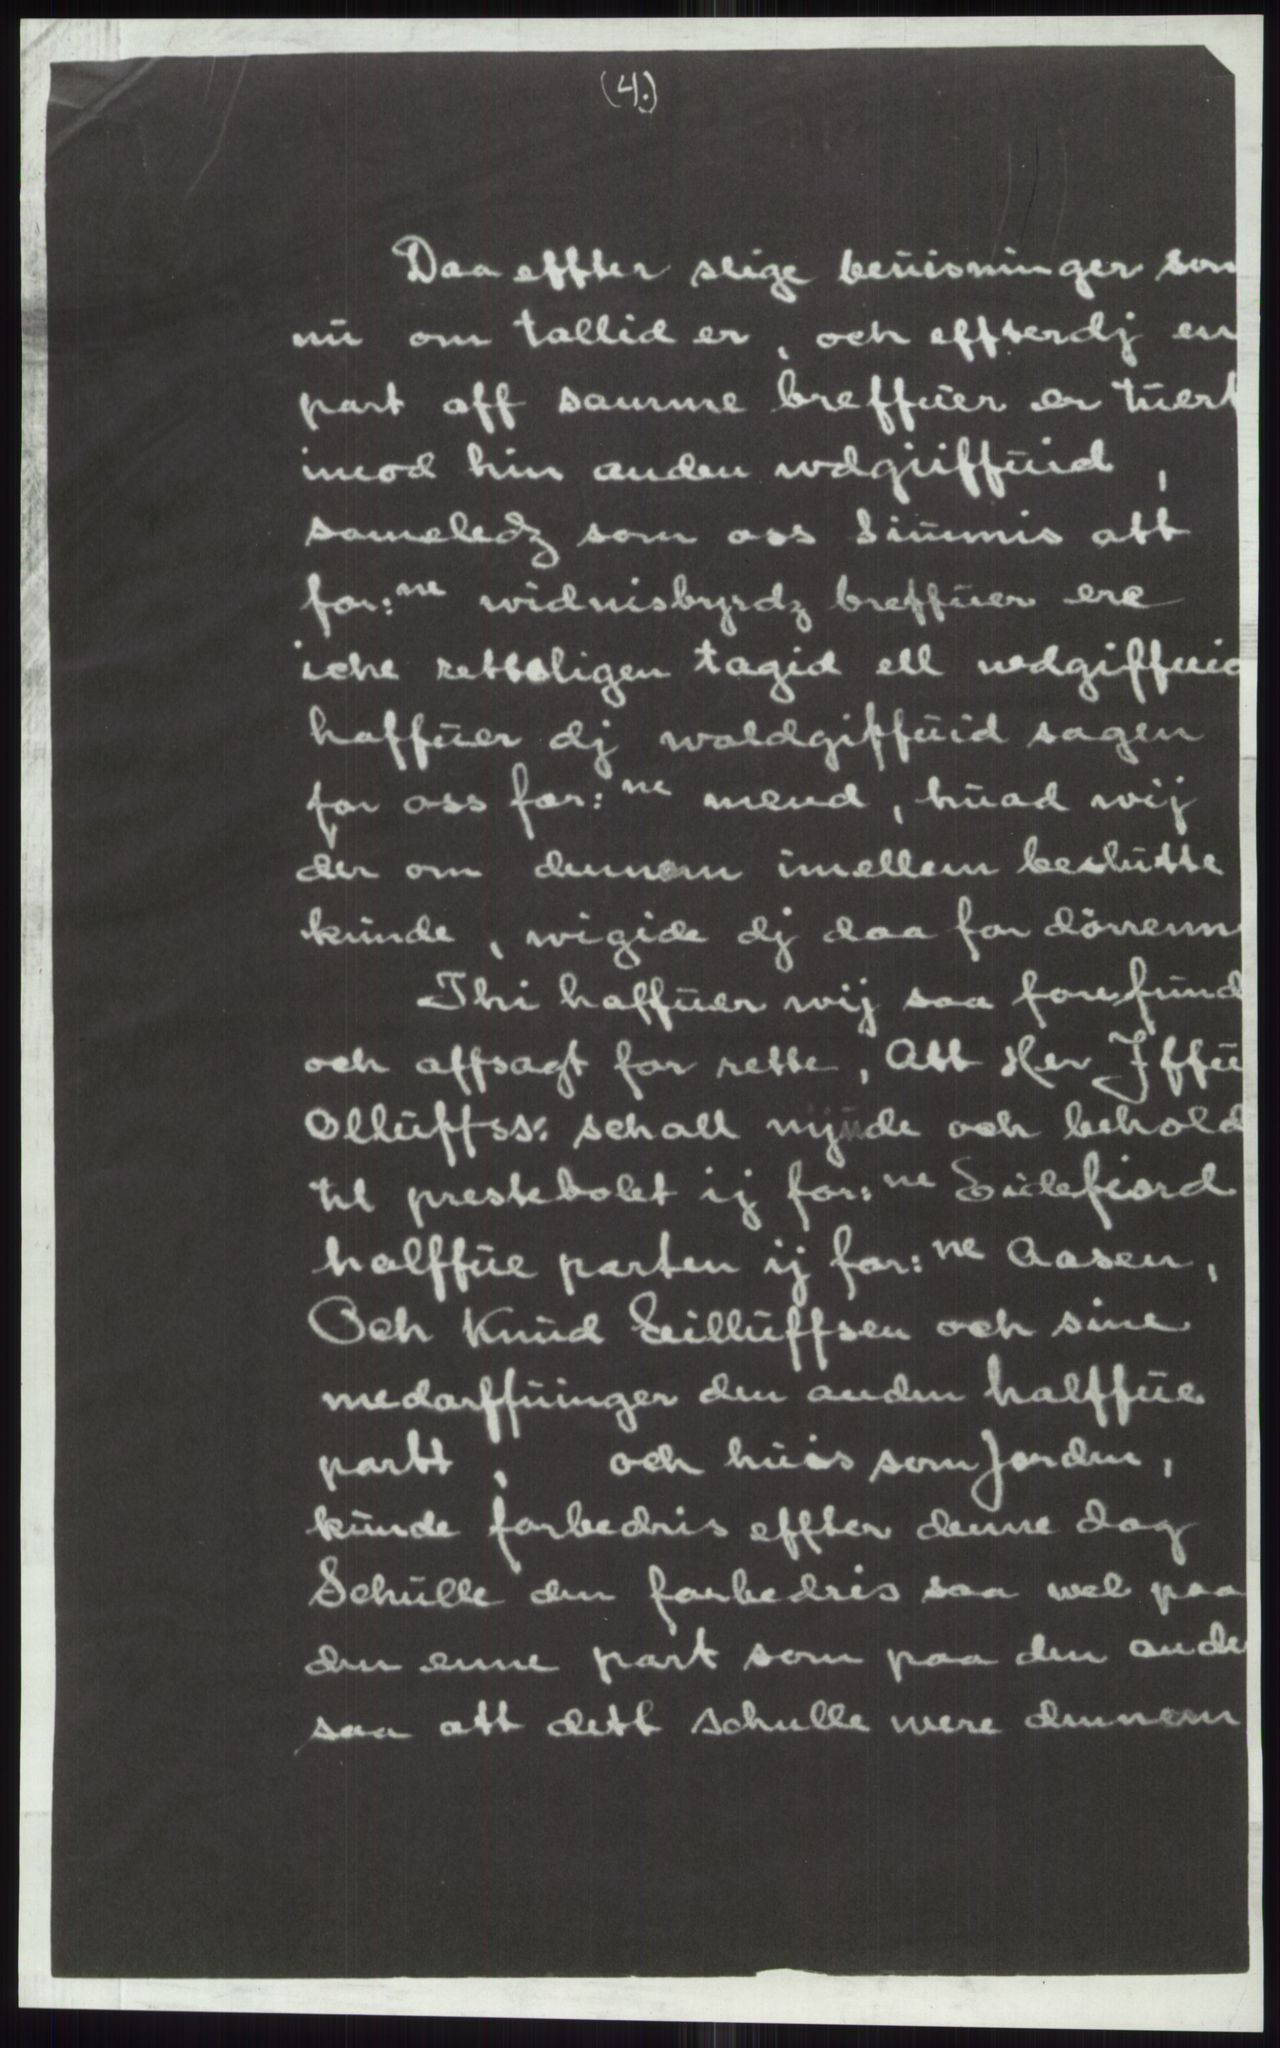 (4.)
Daa effter slige beuisninger som
nu om tallid er, och effterdj en
part aff samme breffuer er tuert
imod hin anden wdgiiffuid,
sameledz som oss siunnis att
for:ne widnisbyrdz breffuer ere
iche retteligen tagid ell wdgiffuid
haffuer dj woldgiffuid sagen
for oss for:ne mend, huad wij
der om dennom imellem beslutte
kunde, wigide dj daa for dörrenn
Thi haffuer wij saa forefund
och affsagt for rette, Att Her Iffu
Olluffss: schall nijude och behold
til prestebolet ij for:ne Eidefiord
halffue parten ij for:ne Aasen,
Och Knud Eilluffsen och sine
medarffuinger den anden halffue
partt, och huis som Jorden,
kunde forbedris effter denne dag
Schulle den forbedris saa wel paa
den enne part som paa den ande
saa att dett schulle were dennom